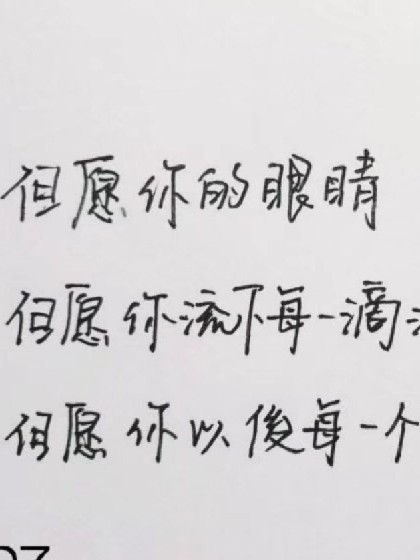 但愿你的眼睛
但愿你流下每一滴
但愿你以後每一个